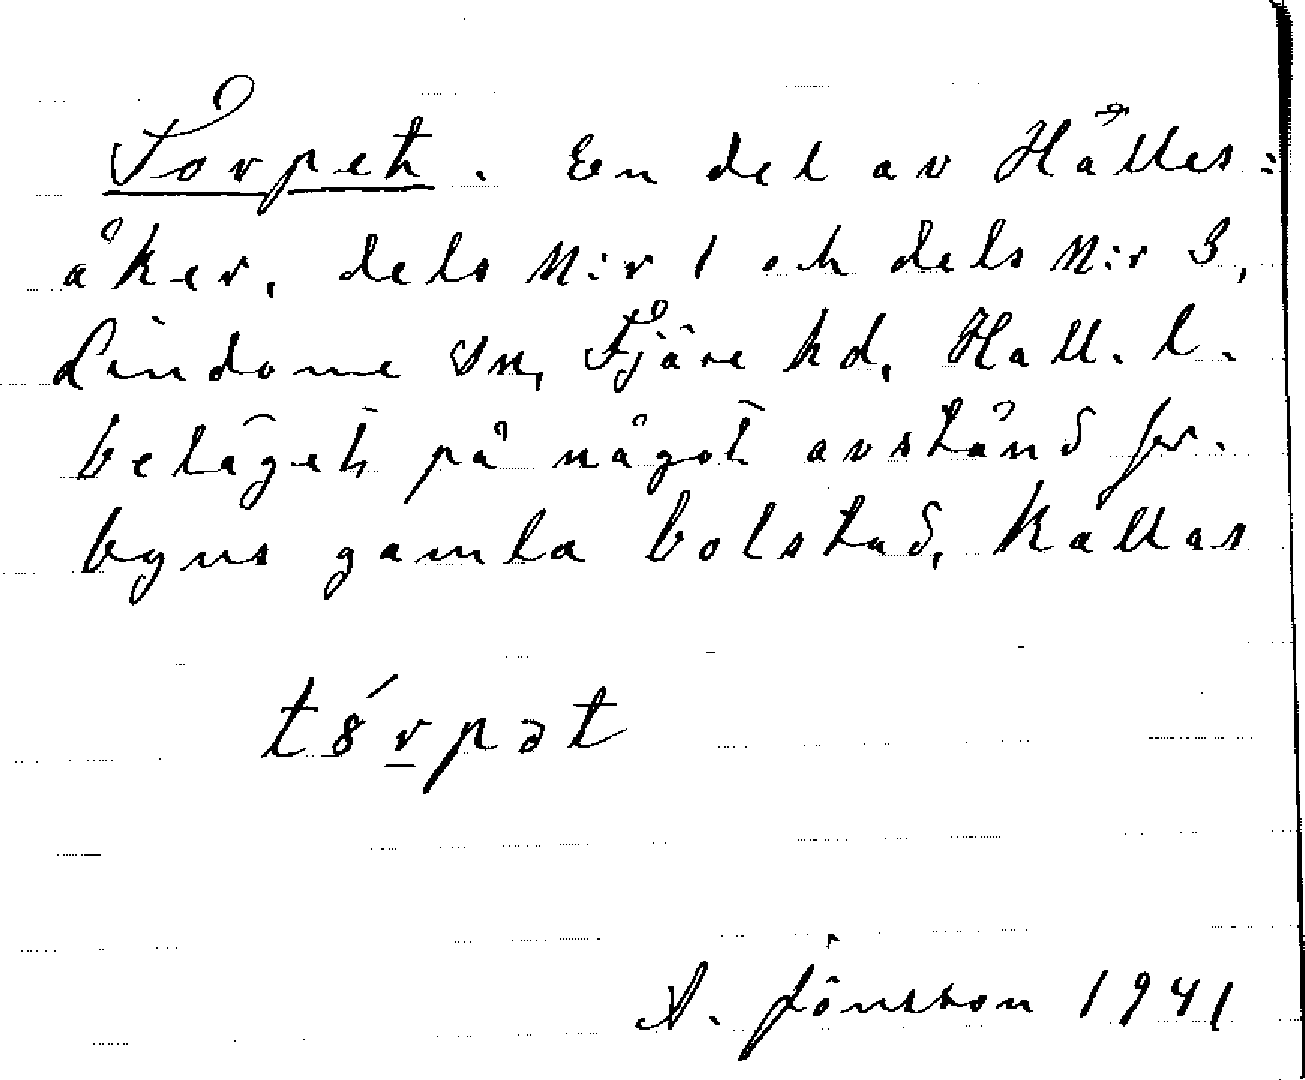 Torpet. En del av Hålles=
åker, dels N:r 1 och dels N:r 3,
Lindome sn, Fjäre hd, Hall. l.
beläget på något avstånd fr.
byns gamla bolstad. Kallas
tórpət
A. Jönsson 1941